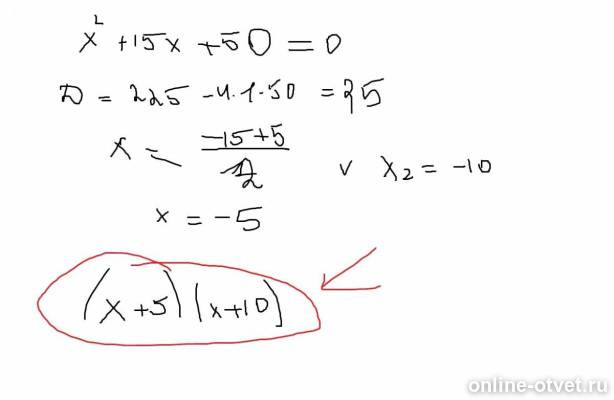 x² + 15x + 50 = 0
D = 225 - 4·1·50 = 25
x = (-15+5)/2 v x₂ = -10
x = -5
(x+5)(x+10)
online-otvet.ru